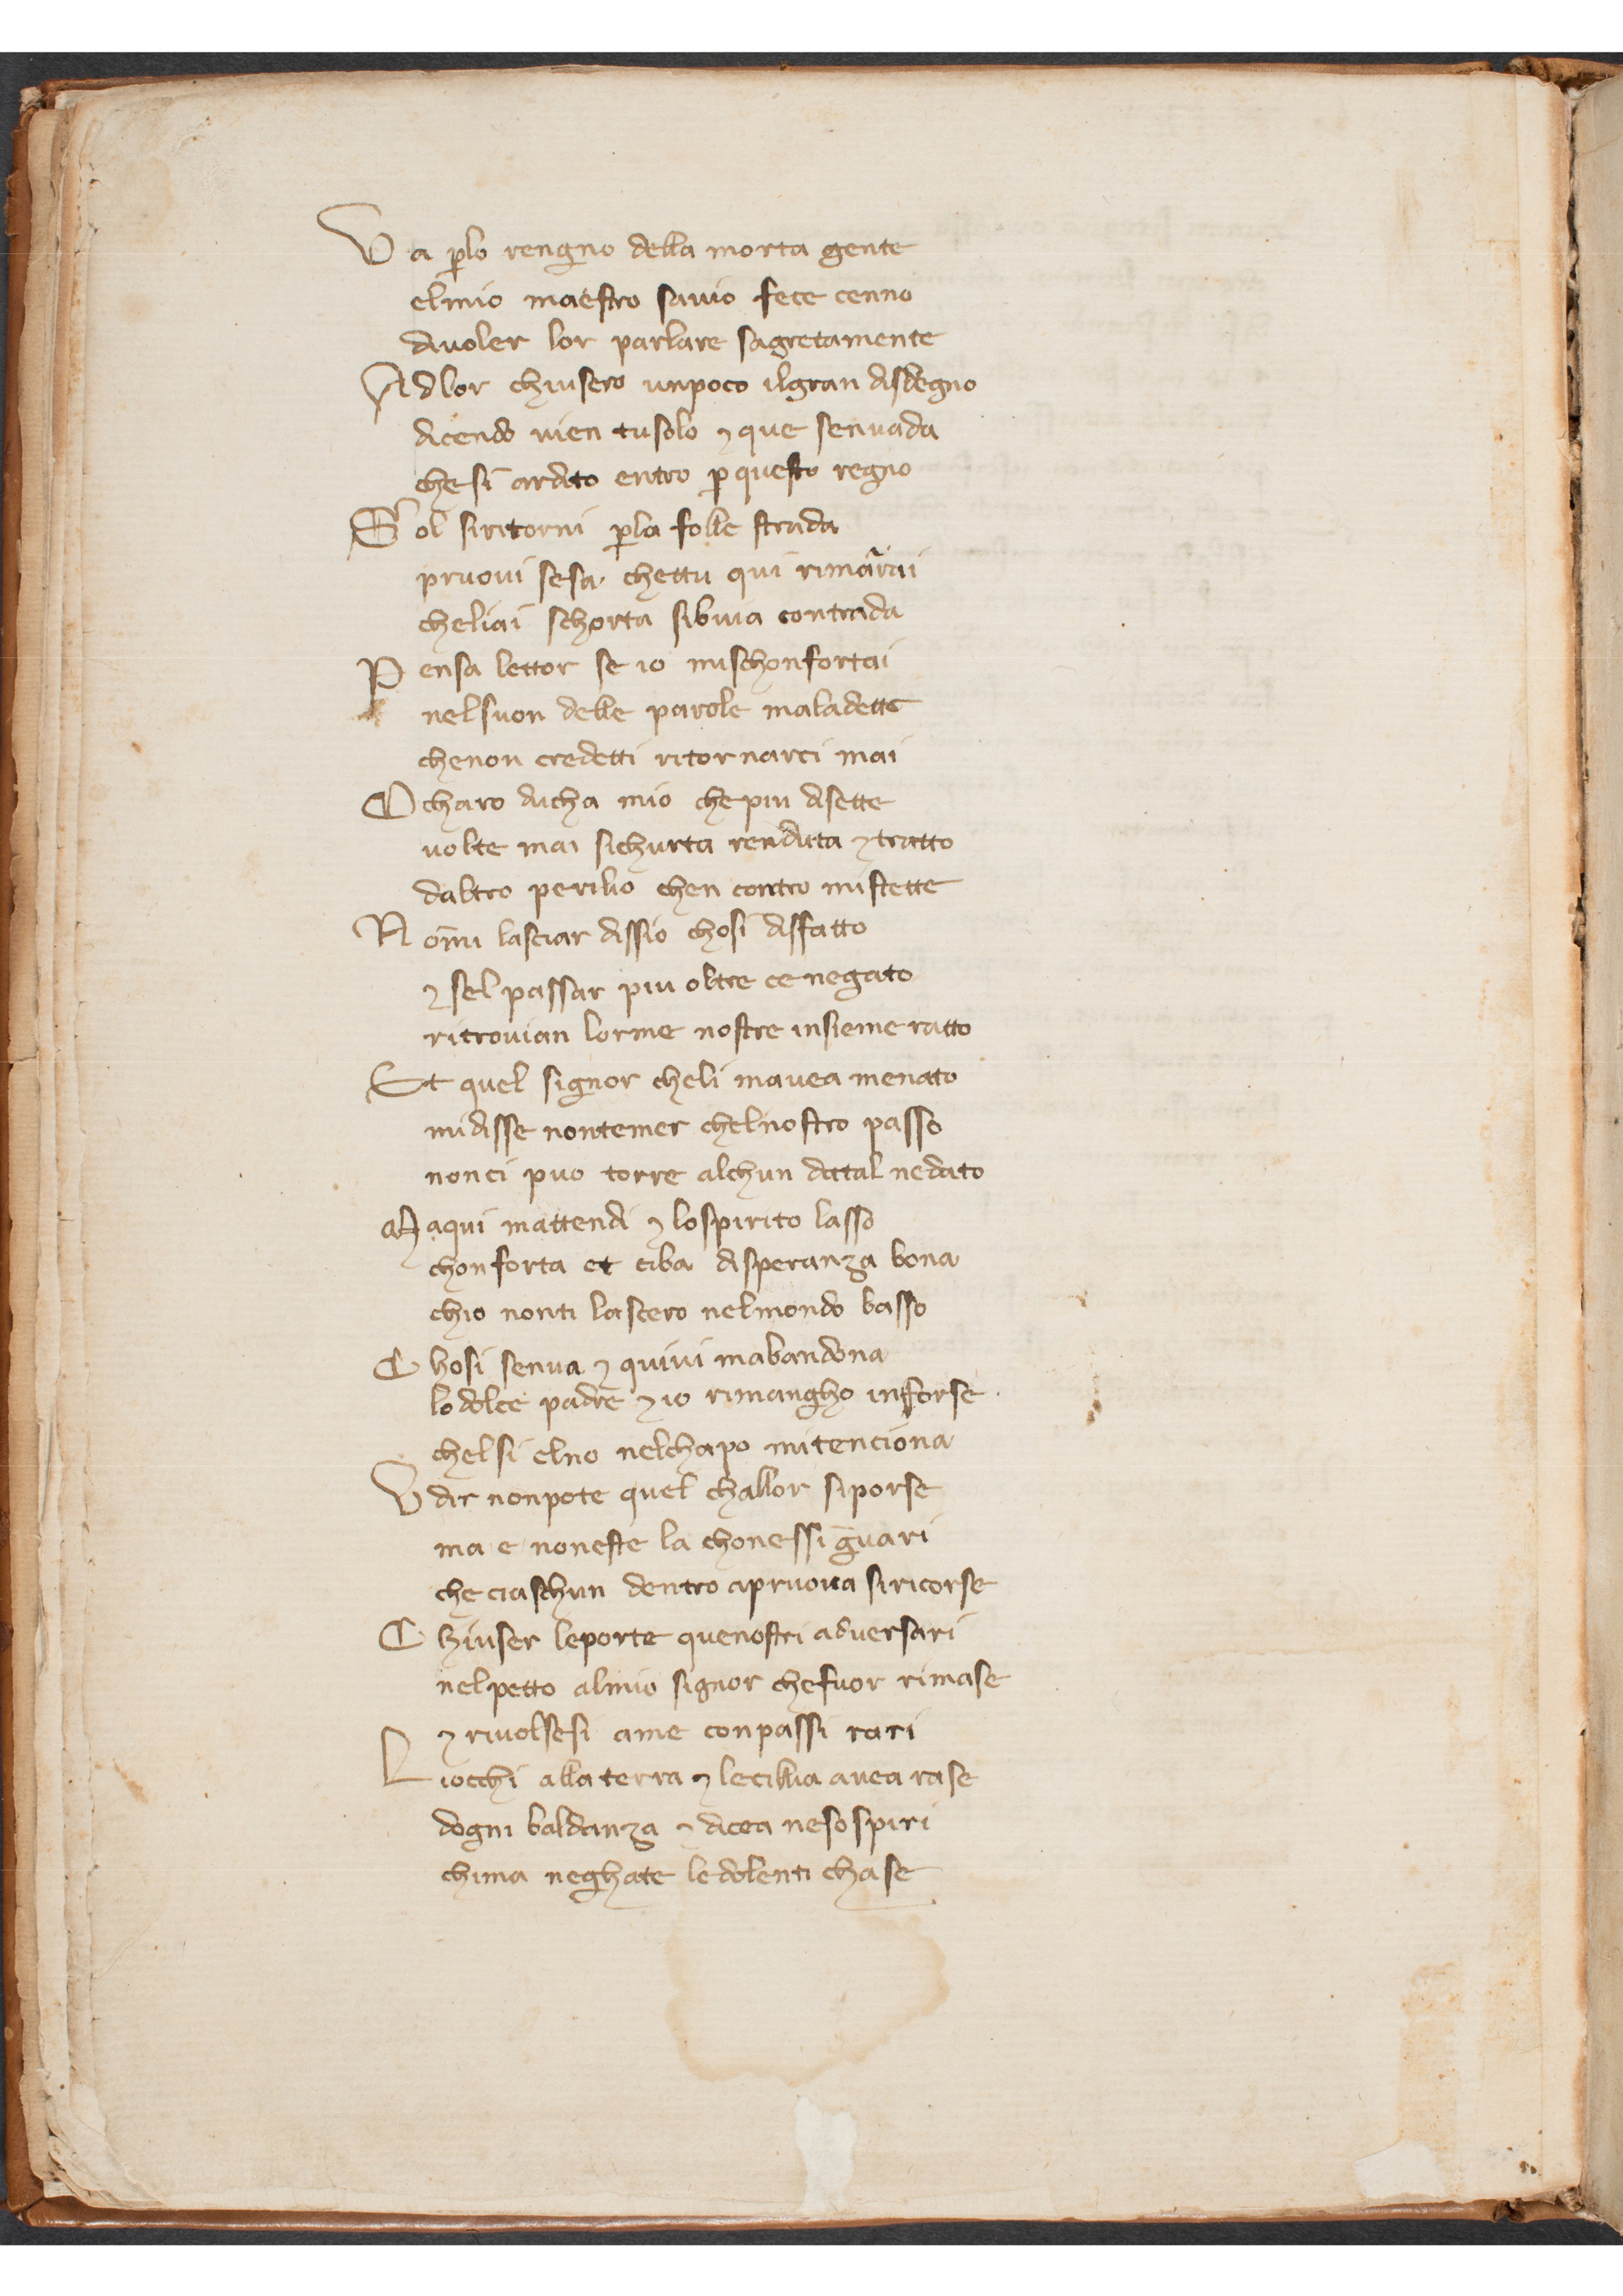 Va ꝑlo rengno della morta gente
elmio maestro sauio fece cenno
diuoler lor parlare sagretamente
Adlor chiusero unpoco ilgran disdegno
dicendo uien tusolo ⁊ que senuada
chesi ardito entro ꝑ questo regno
Sol siritorni ꝑla folle strada
pruoui sesa chettu qui rimarrai
cheliai schorta sibuia contrada
Pensa lettor se io mischonfortai
nelsuon delle parole maladette
chenon credetti ritornarci mai
O charo ducha mio chepiu disette
uolte mai sichurta renduta ⁊ tratto
daltro perilio chen contro mistette
Nōmi lasciar dissio chosi disfatto
⁊ sel passar piu oltre ce negato
ritrouian lorme nostre insieme ratto
Et quel signor cheli mauea menato
midisse nontemer chelnostro passo
nonci puo torre alchun dattal nedato
Maqui mattendi ⁊ lospirito lasso
chonforta et ciba disperanza bona
chio nonti lascero nelmondo basso
Chosi senua ⁊ quiui mabandona
lo dolce padre ⁊ io rimangho inforse
chelsi elno nelchapo mitenciona
Vdir nonpote quel challor siporse
ma e noneste la chonessi guari
che ciaschun dentro apruoua siricorse
Chiuser leporte quenostri aduersari
nelpetto almio signor chefuor rimase
⁊ riuolsesi ame conpassi rari
Liocchi alla terra ⁊ lecillia auea rase
dogni baldanza ⁊ dicea nesospiri
chima neghate ledolenti chase